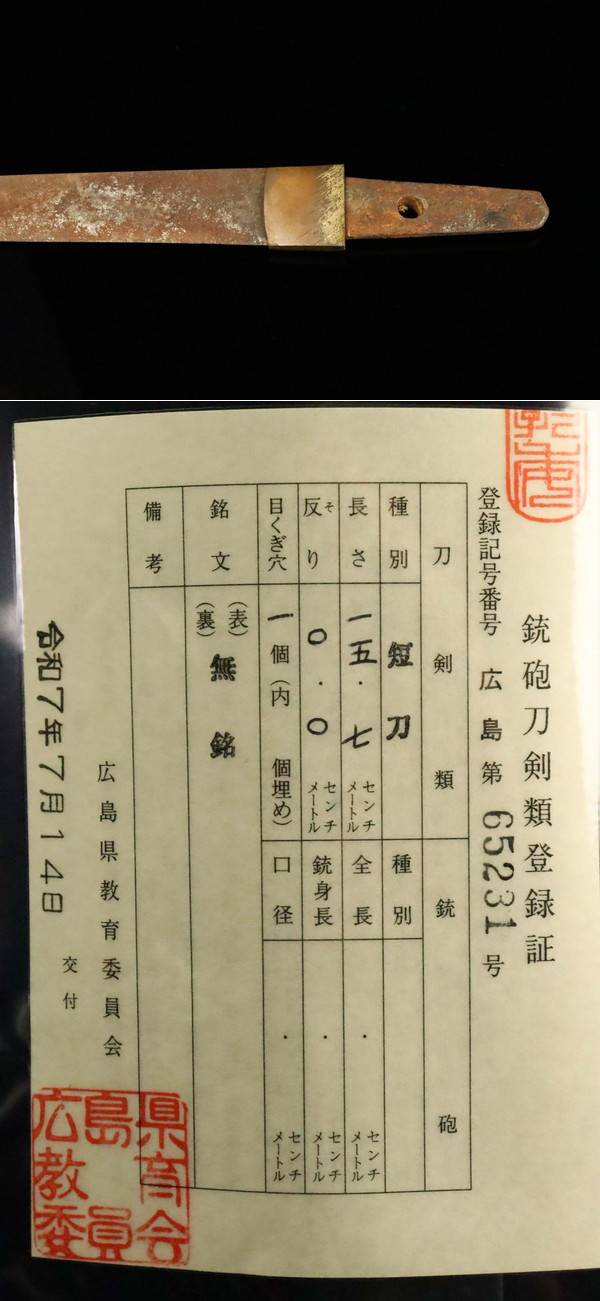 銃砲刀剣類登録証
登録記号番号 広島第 65231 号
刀剣類
銃砲
種別 短刀
長さ 一五・七 センチメートル
反り そ 〇・〇 センチメートル
目くぎ穴 一個(内 個埋め)
銘文 (表) 無銘
(裏)
備考
種別
全長 ・ センチメートル
銃身長 ・ センチメートル
口径 ・ センチメートル
広島県教育委員会
令和7年7月14日 交付
広島県教育委員会